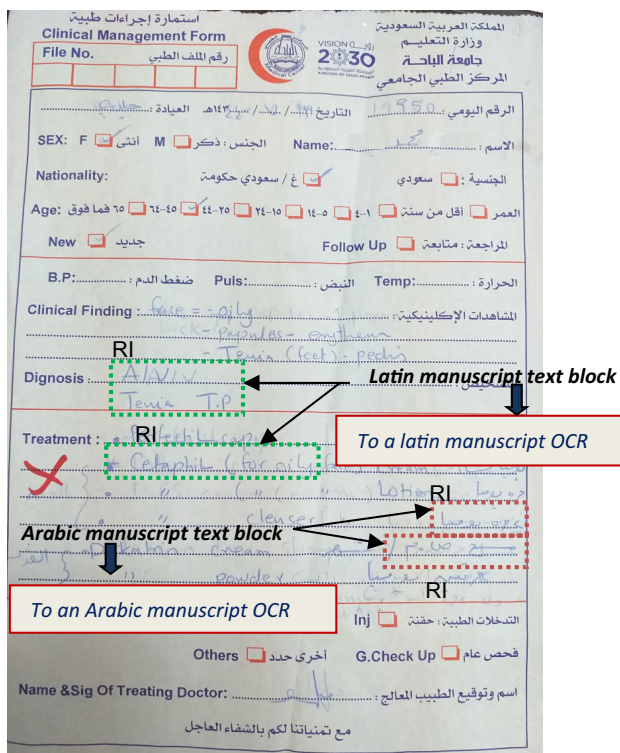 استمارة إجراءات طبية
Clinical Management Form
File No. رقم الملف الطبي
VISION رؤيـة
2030
المملكة العربية السعودية
KINGDOM OF SAUDI ARABIA
Medical Center
المملكة العربية السعودية
وزارة التعليـم
جامعة الباحـة
المركز الطبي الجامعي
الرقم اليومي : 19950 التاريخ / / ١٤٣هـ العيادة : جلدية
الاسم : محمد Name: الجنس : ذكر M أنثى F SEX:
Nationality: الجنسية : سعودي غ / سعودي حكومة
العمر اقل من سنة ١-٤ ٥-١٤ ١٥-٢٤ ٢٥-٤٤ ٤٥-٦٤ ٦٥ فما فوق Age:
المراجعة : متابعة Follow Up جديد New
الحرارة : Temp: النبض : Puls: ضغط الدم : B.P:
Clinical Finding : face = - oily المشاهدات الإكلينيكية :
- papules - erythema
- Tenia (feet) - pedis
RI
Dignosis :
Tenia T.P
Latin manuscript text block
To a latin manuscript OCR
Treatment :
RI
* Cetaphil (for oily
Lotion
RI
cleanser
Arabic manuscript text block
cream
powder
RI
To an Arabic manuscript OCR
التدخلات الطبية : حقنة Inj
فحص عام G.Check Up أخرى حدد Others
اسم وتوقيع الطبيب المعالج : Name &Sig Of Treating Doctor:
مع تمنياتنا لكم بالشفاء العاجل